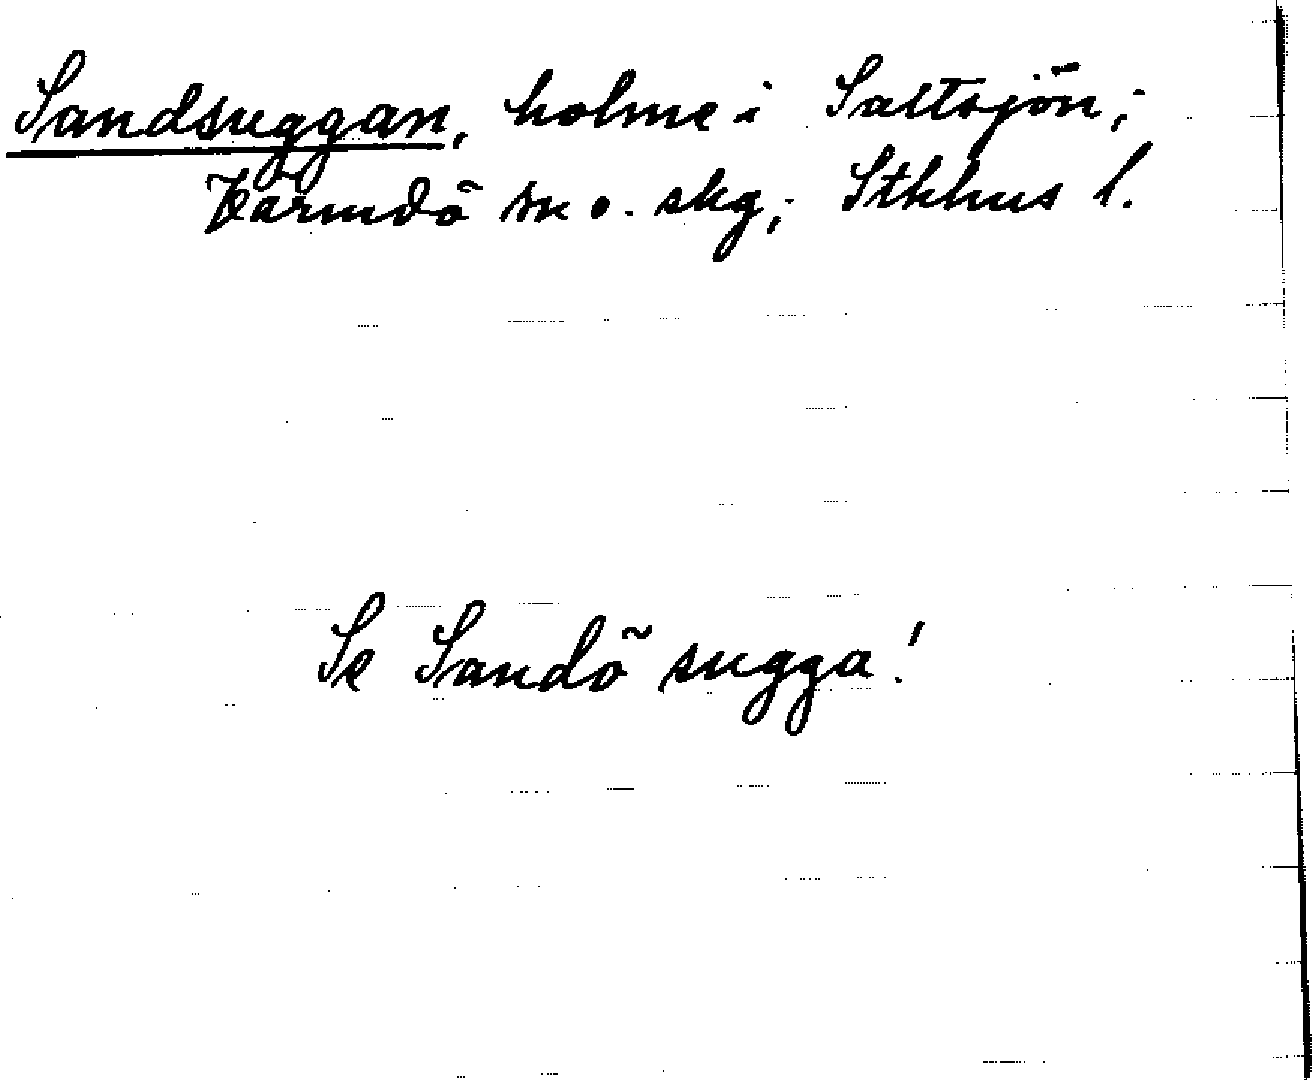 Sandsuggan, holme i Saltsjön;
Värmdö sn o. skg; Sthhus l.
Se Sandö sugga!